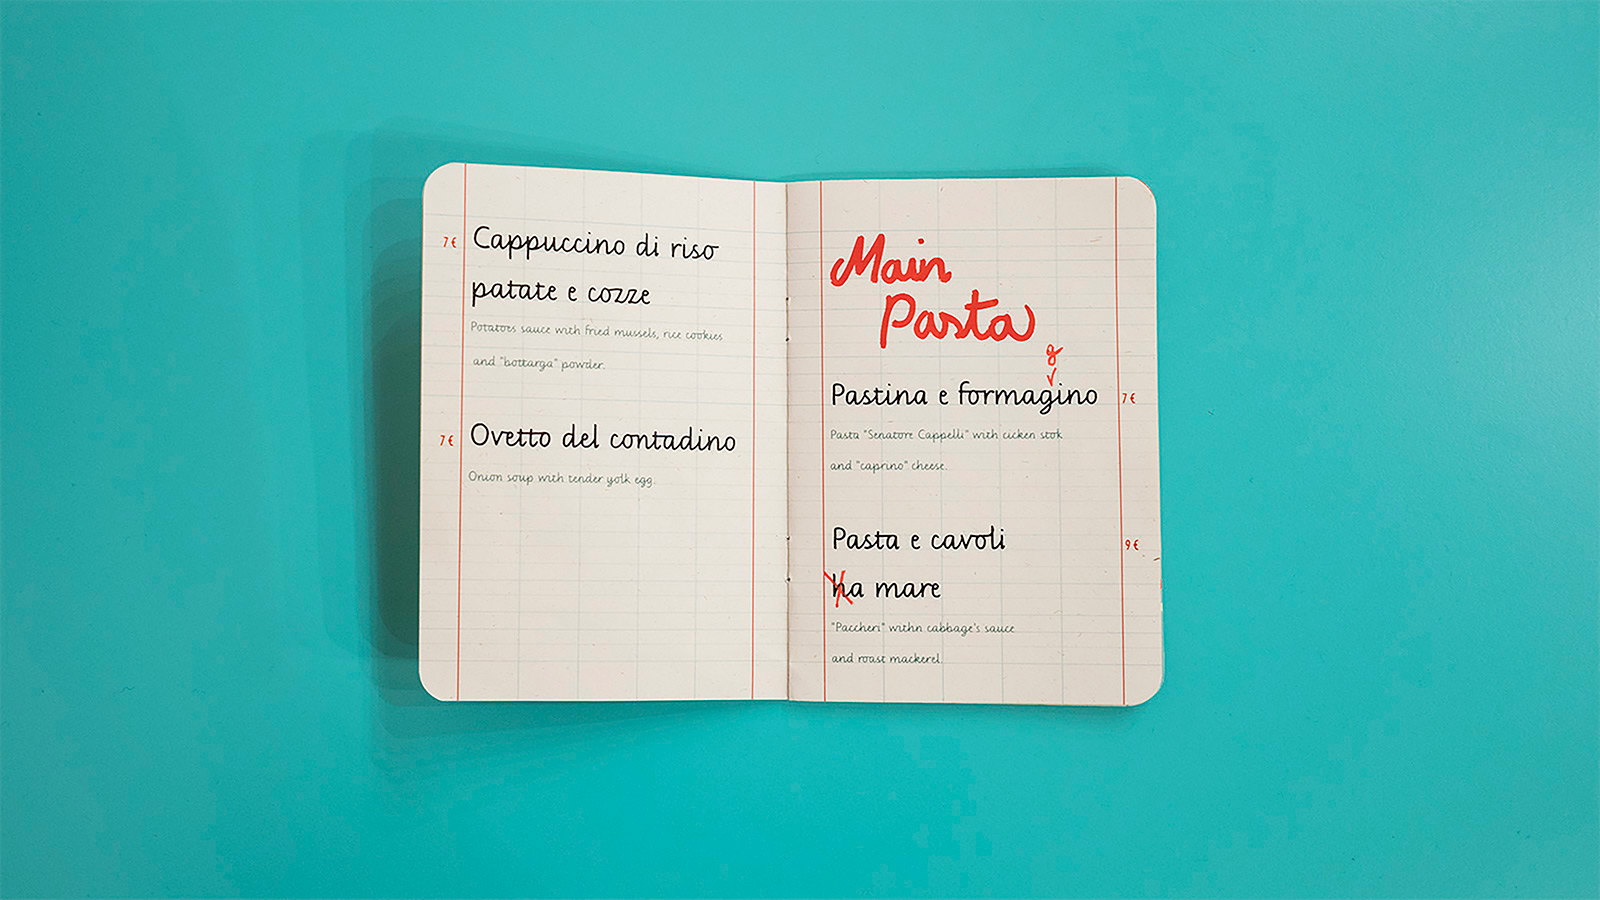 7€ Cappuccino di riso
patate e cozze
Potatoes sauce with fried mussels, rice cookies
and "bottarga" powder.
7€ Ovetto del contadino
Onion soup with tender yolk egg.
Main
Pasta
g
Pastina e formagino 7€
Pasta "Senatore Cappelli" with cicken stok
and "caprino" cheese.
Pasta e cavoli 9€
ha mare
"Paccheri" withn cabbage's sauce
and roast mackerel.